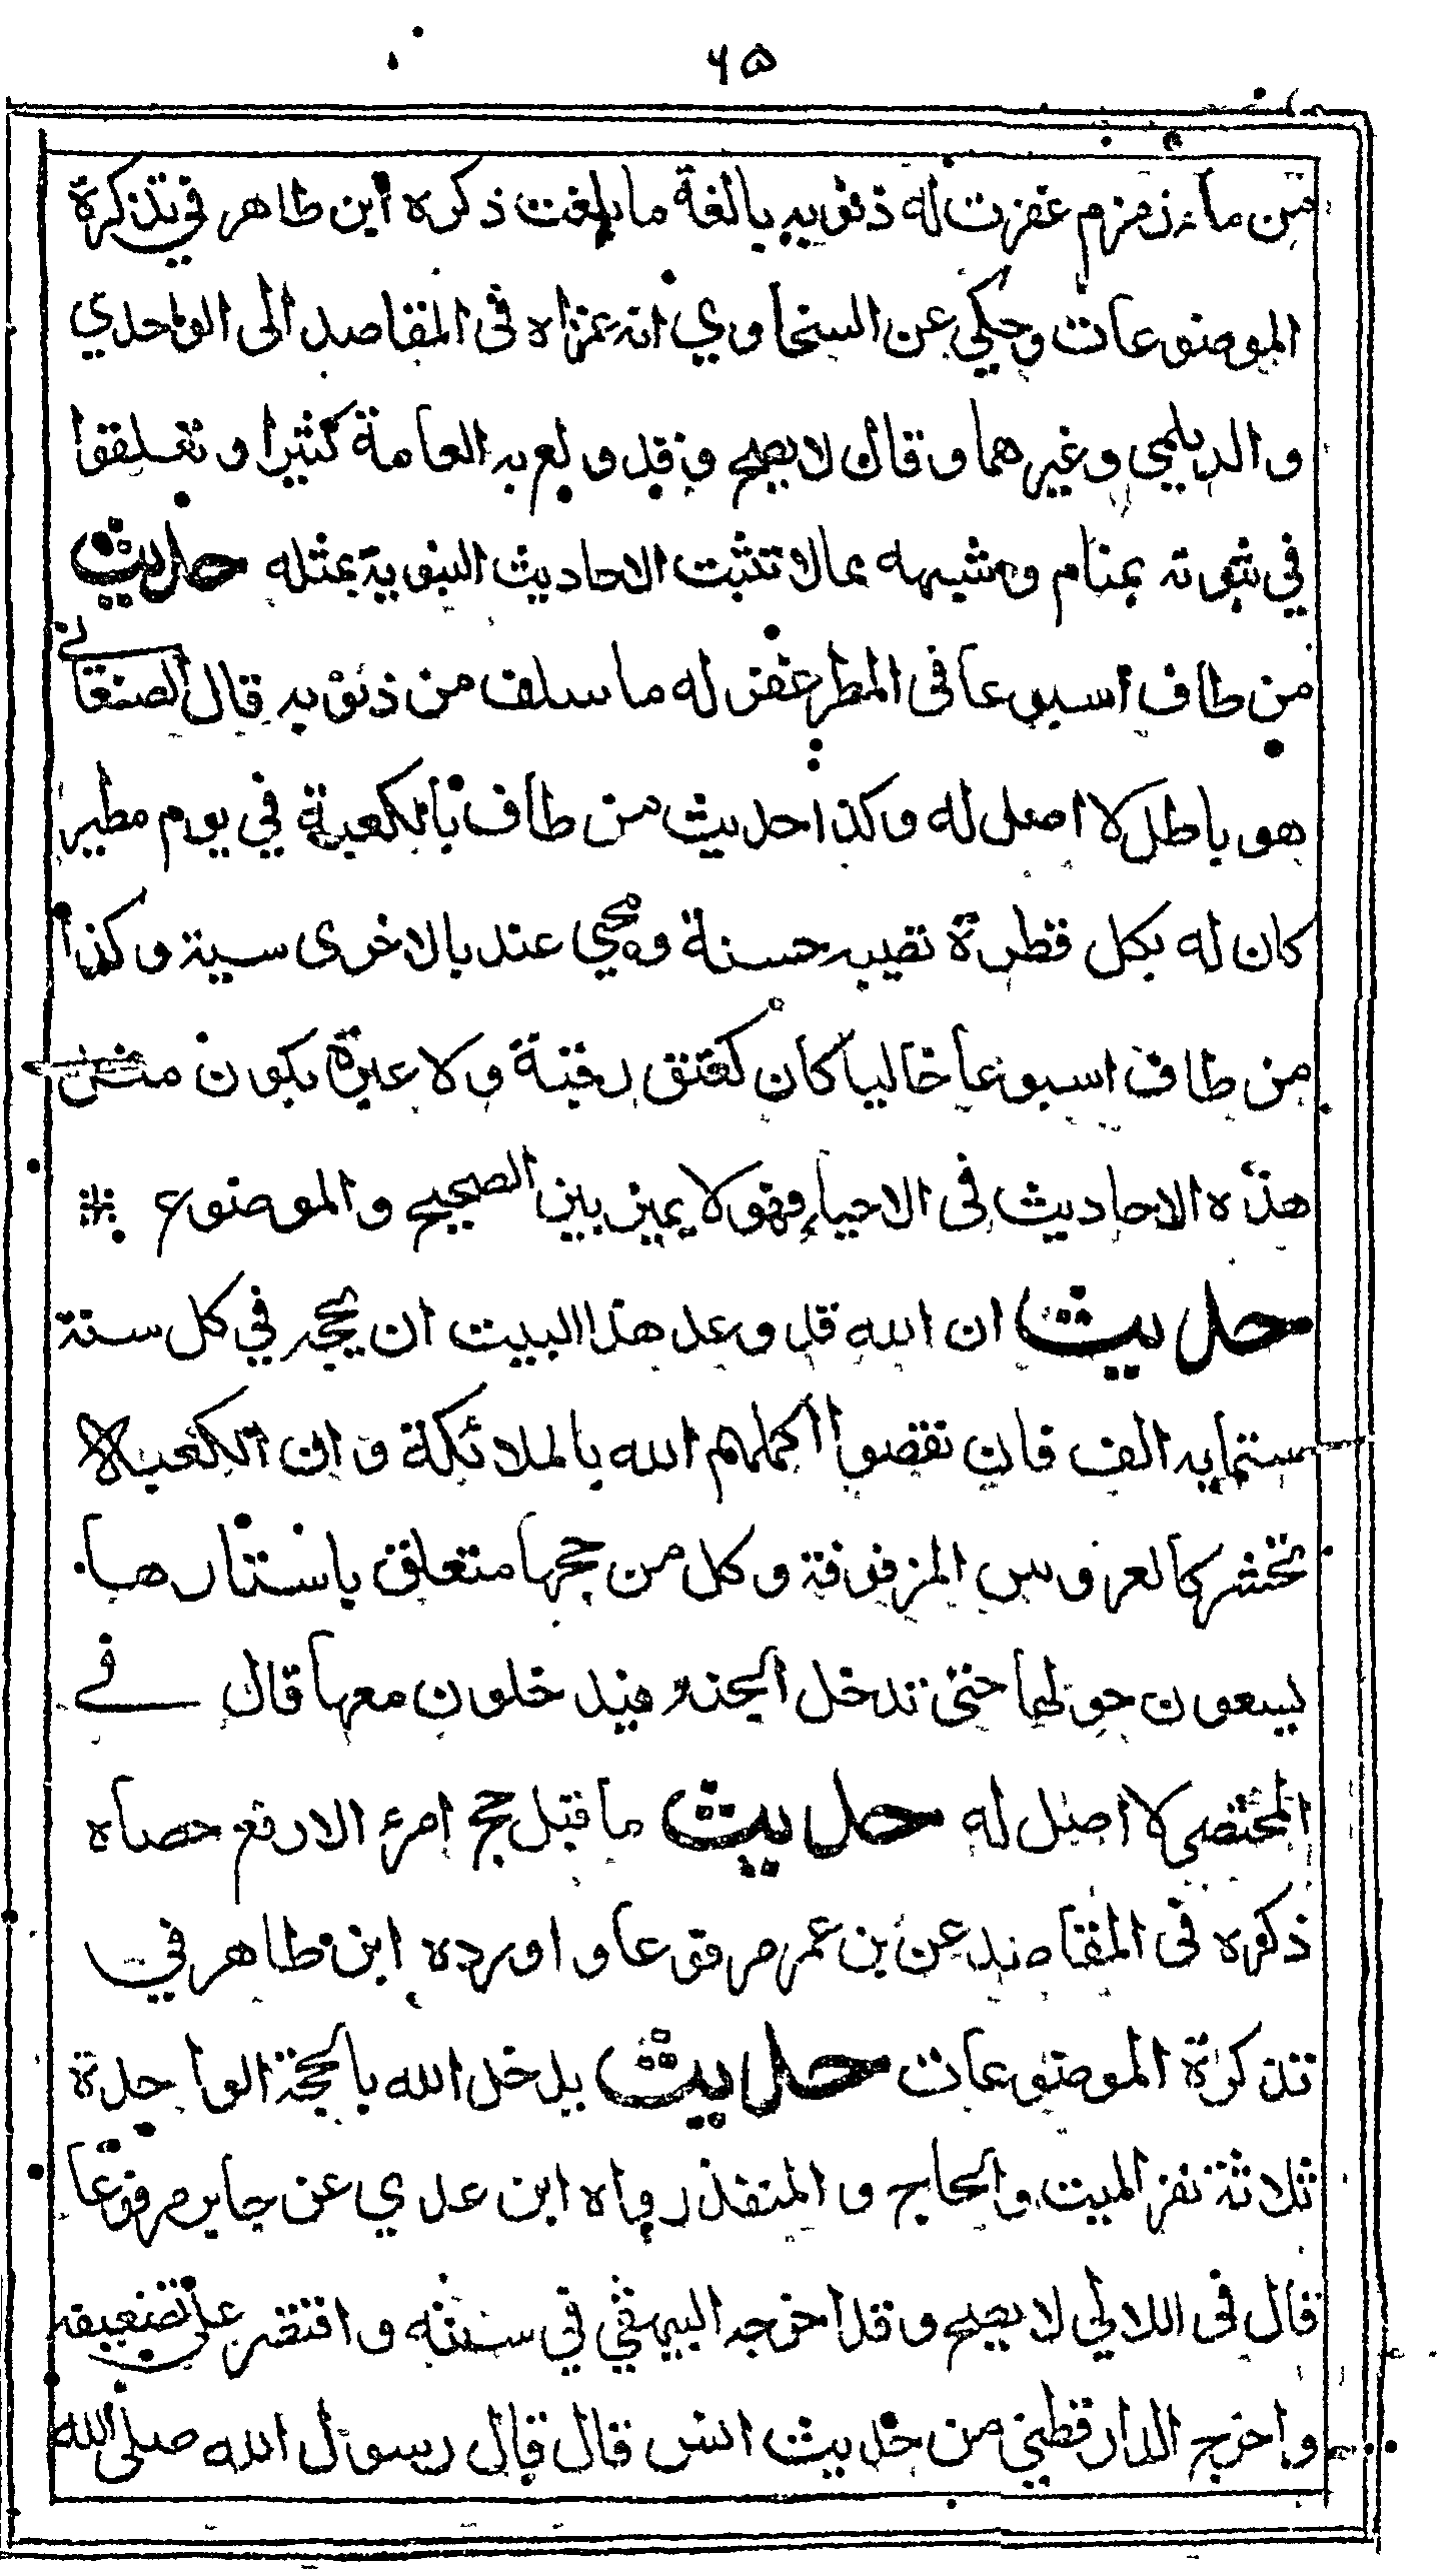 ٦٥
من ماء زمزم غفرت له ذنوبه بالغة ما بلغت ذكره ابن طاهر في تذكرة
الموضوعات وحكي عن السخاوي انه عزاه في المقاصد الى الواحدي
والديلمي وغيرهما وقال لا يصح وقد ولع به العامة كثيرا وتعلقوا
في ثبوته بمنام وشبهه مما لا تثبت الاحاديث النبوية بمثله حديث
من طاف اسبوعا في المطر غفر له ما سلف من ذنوبه قال الصنعاني
هو باطل لا اصل له وكذا حديث من طاف بالكعبة في يوم مطير
كان له بكل قطرة تصيبه حسنة ومحي عنه بالاخرى سية وكذا
من طاف اسبوعا خاليا كان كعتق رقبة ولا عبرة بكون
هذه الاحاديث في الاحياء فهو لا يميز بين الصحيح والموضوع
حديث ان الله قد وعد هذا البيت ان يحجه في كل سنة
ستماية الف فان نقصوا اكملهم الله بالملائكة وان الكعبة
تحشر كالعروس المزفوفة وكل من حجها متعلق باستارها
يسعون حولها حتى تدخل الجنة فيدخلون معها قال في
المختصر لا اصل له حديث ما قبل حج امرء الا رفع حصاه
ذكره في المقاصد عن بن عمر مرفوعا واورده ابن طاهر في
تذكرة الموضوعات حديث يدخل الله بالحجة الواحدة
ثلاثة نفر الميت والحاج والمنفذ رواه ابن عدي عن جابر مرفوعا
قال في اللالي لا يصح وقد اخرجه البيهقي في سننه واقتصر على تضعيفه
واخرج الدارقطني من حديث انس قال قال رسول الله صلى الله